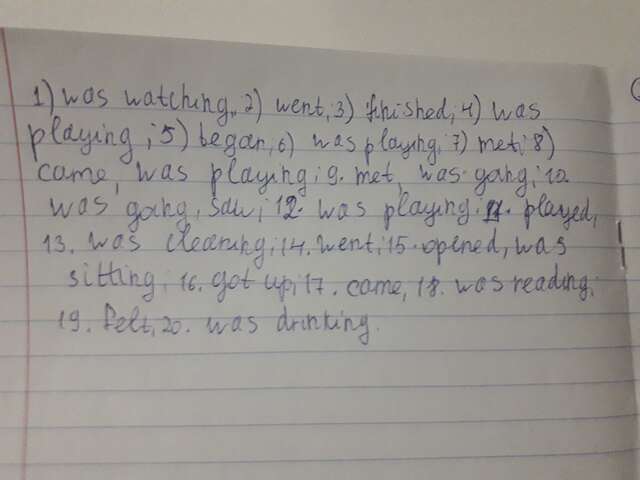 1) was watching, 2) went; 3) finished; 4) was
playing; 5) began, 6) was playing, 7) met; 8)
came, was playing; 9. met, was gong; 10
was gong, saw; 12. was playing; 11. played,
13. was cleaning; 14. went; 15. opened, was
sitting; 16. got up; 17. came, 18. was reading;
19. felt, 20. was drinking.